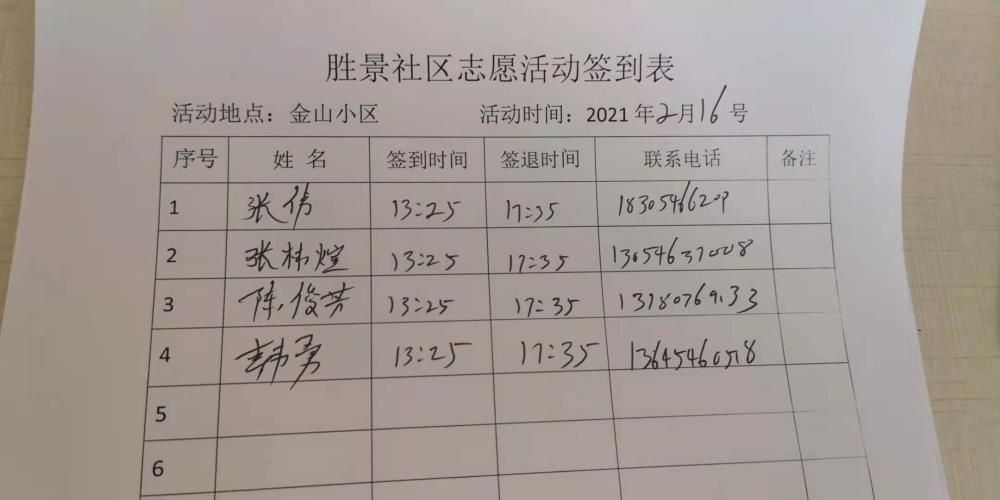 胜景社区志愿活动签到表
活动地点：金山小区 活动时间：2021年2月16号
序号 姓名 签到时间 签退时间 联系电话 备注
1 张伟 13:25 17:35
2 张栋煊 13:25 17:35
3 陈俊芳 13:25 17:35
4 韩勇 13:25 17:35
5
6